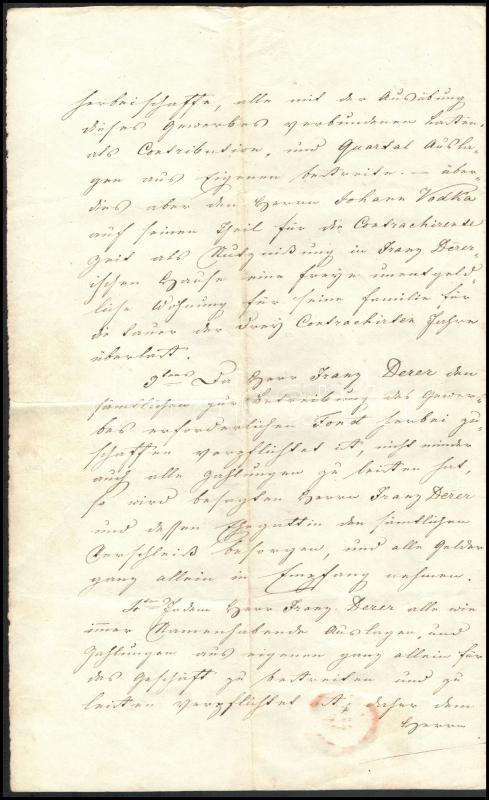 herbeischaffe, alle mit der Ausübung
dieses Gewerbes verbundenen Lasten,
als Contribution, und Quartal Ausla-
gen aus Eigenen bestreite. – über-
dies aber dem Herrn Johann Vodka
auf seinen Theil für die Contrachirende
Zeit als Nutzniß̈ung in Franz Derer-
ischen Hause eine freye unentgeld-
liche Wohnung für seine Familie für
die Dauer der drey Contrachirten Jahre
überlast.
9tens Da Herr Franz Derer den
sämtlichen zur Betreibung des Gewer-
bes erforderlichen Fond herbei zu-
schaffen verpflichtet ist, nicht minder
auch alle Zahlungen zu leisten hat,
so wird besagten Herrn Franz Derer
und dessen Ehegattin den sämtlichen
Verschleiß besorgen, und alle Gelder
ganz allein in Empfang nehmen.
Indem Herr Franz Derer alle wie
immer Namenhabende Auslagen, und
Zahlungen aus eigenen ganz allein für
das Geschäft zu bestreiten und zu
leisten verpflichtet ist; daher dem
Herrn